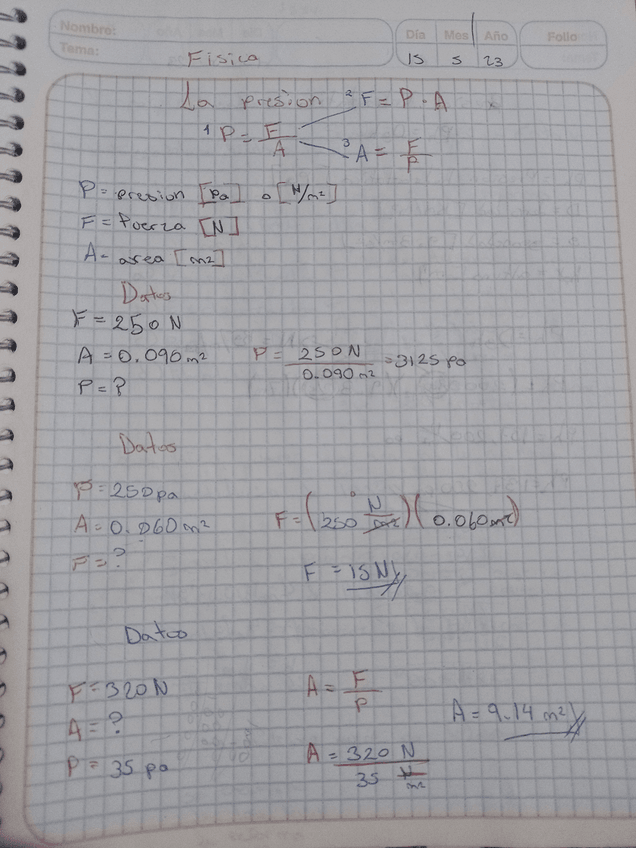 Nombre:
Tema: Física
Día Mes Año Folio
15 5 23
La presion ² F = P · A
¹ P = F/A ³ A = F/P
P = presion [Pa] o [N/m²]
F = Fuerza [N]
A = area [m²]
Datos
F = 250 N
A = 0.090 m² P = 250 N / 0.090 m² = 3125 pa
P = ?
Datos
P = 250 pa
A = 0.060 m² F = (250 N/m²)(0.060 m²)
F = ?
F = 15 N
Datos
F = 320 N A = F/P
A = ? A = 9.14 m²
P = 35 pa A = 320 N / 35 N/m²